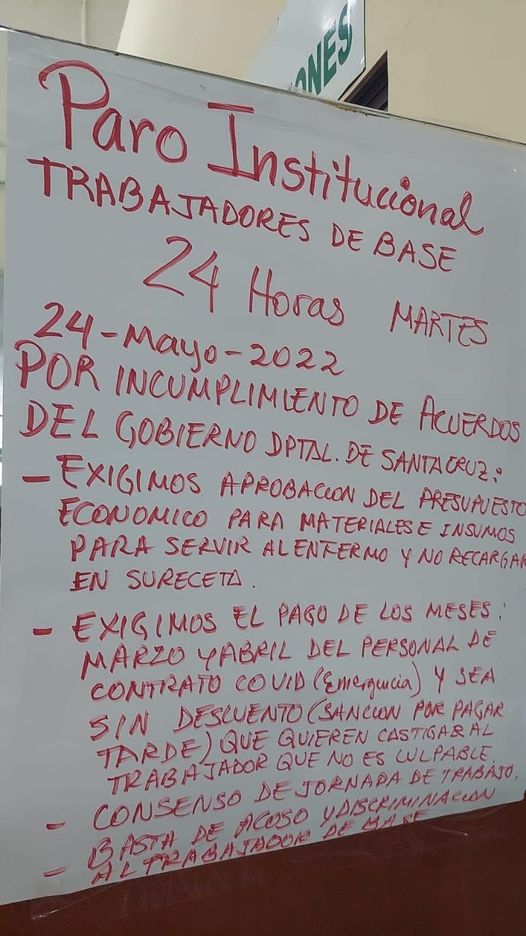 ONES
Paro Institucional
TRABAJADORES DE BASE
24 Horas MARTES
24-Mayo-2022
POR INCUMPLIMIENTO DE ACUERDOS
DEL GOBIERNO DPTAL. DE SANTA CRUZ:
- EXIGIMOS APROBACION DEL PRESUPUESTO
ECONOMICO PARA MATERIALES E INSUMOS
PARA SERVIR AL ENFERMO Y NO RECARGAR
EN SU RECETA.
- EXIGIMOS EL PAGO DE LOS MESES:
MARZO Y ABRIL DEL PERSONAL DE
CONTRATO COVID (Emergencia) Y SEA
SIN DESCUENTO (SANCION POR PAGAR
TARDE) QUE QUIEREN CASTIGAR AL
TRABAJADOR QUE NO ES CULPABLE.
- CONSENSO DE JORNADA DE TRABAJO.
- BASTA DE ACOSO Y DISCRIMINACION
AL TRABAJADOR DE BASE